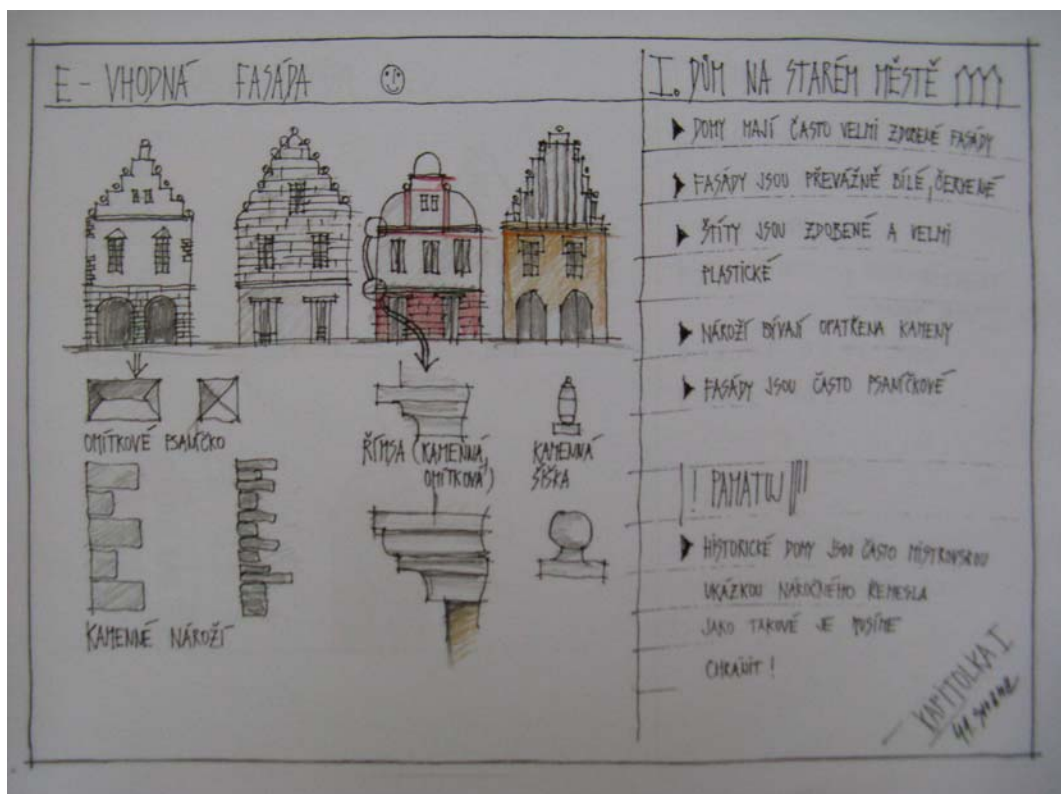 E - VHODNÁ FASÁDA
OMÍTKOVÉ PSANÍČKO
KAMENNÉ NÁROŽÍ
ŘÍMSA (KAMENNÁ,
OMÍTKOVÁ)
KAMENNÁ
ŠIŠKA
I. DŮM NA STARÉM MĚSTĚ
DOMY MAJÍ ČASTO VELMI ZDOBENÉ FASÁDY
FASÁDY JSOU PŘEVÁŽNĚ BÍLÉ, ČERVENÉ
ŠTÍTY JSOU ZDOBENÉ A VELMI
PLASTICKÉ
NÁROŽÍ BÝVAJÍ OPATŘENA KAMENY
FASÁDY JSOU ČASTO PSANÍČKOVÉ
! PAMATUJ !!!
HISTORICKÉ DOMY JSOU ČASTO MISTROVSKOU
UKÁZKOU NÁROČNÉHO ŘEMESLA
JAKO TAKOVÉ JE MUSÍME
CHRÁNIT!
KAPITOLKA I